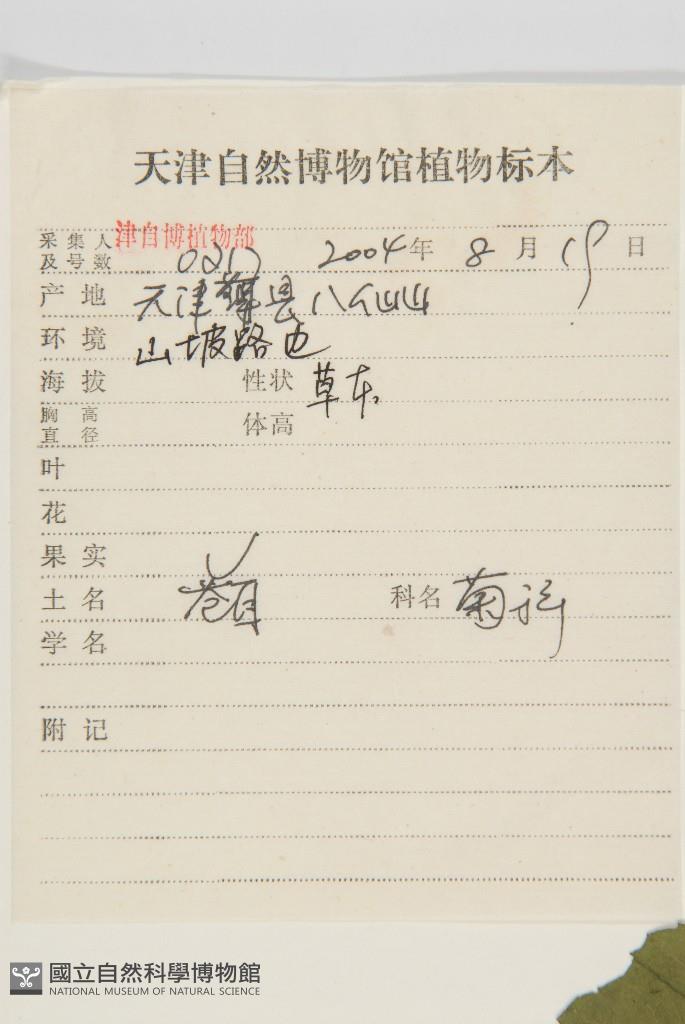 天津自然博物馆植物标本
采集人及号数 津自博植物部 0212 2004年 8月 19日
产地 天津蓟县八仙山
环境 山坡路边
海拔 性状 草本
胸高直径 体高
叶
花
果实 ✓
土名 苍耳 科名 菊科
学名
附记
國立自然科學博物館
NATIONAL MUSEUM OF NATURAL SCIENCE